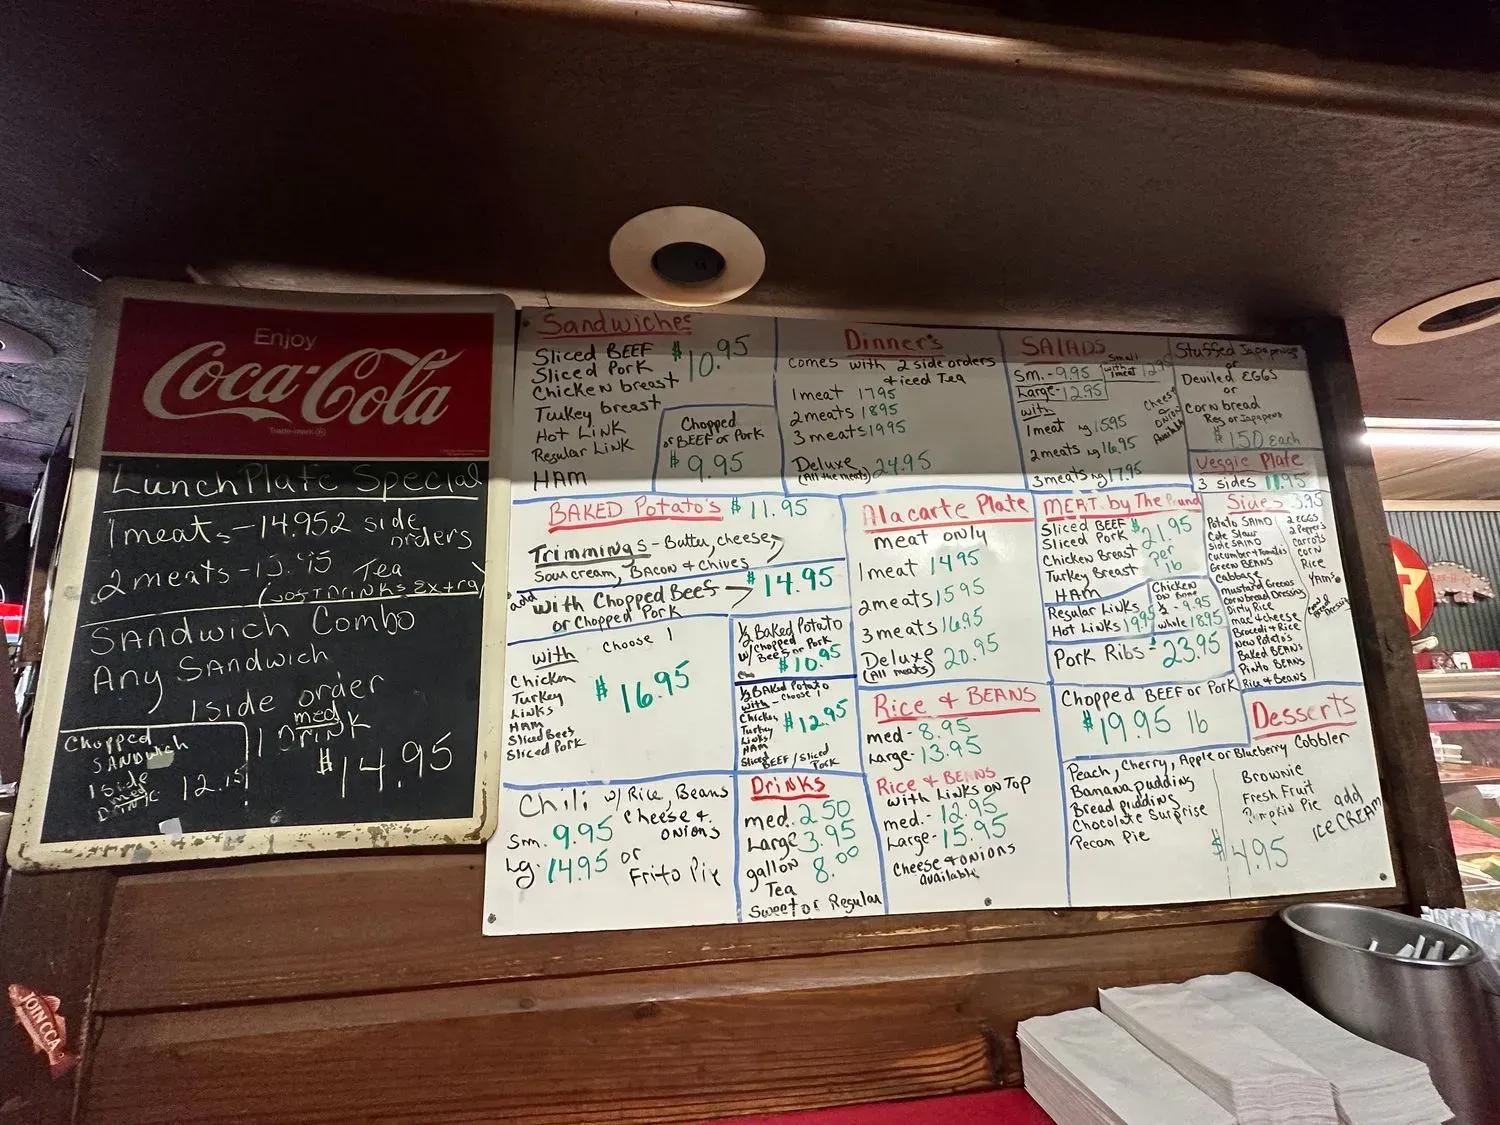 Enjoy
Coca-Cola
Trade-mark ®
Lunch Plate Special
1 meat - 14.95 2 side orders
2 meats - 15.95 Tea
Sandwich Combo
Any Sandwich
1 side order
1 med Drink
$14.95
Chopped
Sandwich
1 side
med
Drink
12.15
Sandwiches
Sliced BEEF $10.95
Sliced Pork
Chicken breast
Turkey breast
Hot Link
Regular Link
HAM
Chopped
BEEF or Pork
$9.95
Dinner's
comes with 2 side orders
+ iced Tea
1 meat 1795
2 meats 1895
3 meats 1995
Deluxe 24.95
(All the meats)
SALADS
Sm. - 9.95
Small with 1 meat
Large - 12.95
with
1 meat 1595
2 meats 16.95
3 meats 17.95
Cheese
onion
Available
Stuffed Japapenos
or
Deviled EGGS
or
Cornbread
Reg or Japapeno
$1.50 each
Veggie Plate
3 sides 11.95
BAKED Potato's $11.95
Trimmings - Butter, cheese,
Sour cream, BACON & Chives
add with Chopped Beef $14.95
or Chopped Pork
with choose 1
Chicken
Turkey
Links
HAM
Sliced Beef
Sliced Pork
$16.95
½ Baked Potato
w/ Chopped
Beef or Pork
$10.95
½ BAKED Potato
with - choose 1
Chicken
Turkey
Links
HAM
Sliced BEEF / Sliced
Pork
$12.95
Alacarte Plate
meat only
1 meat 1495
2 meats 1595
3 meats 16.95
Deluxe 20.95
(All meats)
MEAT by The Pound
Sliced BEEF $21.95
Sliced Pork per
Chicken Breast lb
Turkey Breast
HAM
Regular Links 19.95
Hot Links
Chicken
on Bone
½ - 9.95
whole 18.95
Pork Ribs - $23.95
Chopped BEEF or Pork
$19.95 lb
Sides 3.95
Potato SALAD
Cole Slaw
Side SALAD
Cucumber & Tomatoes
Green BEANS
Cabbage
mustard Greens
Cornbread Dressing
Dirty Rice
mac & cheese
Brocoli & Rice
New Potato's
Baked BEANS
Pinto BEANS
Rice & Beans
2 EGGS
2 Pepper's
Carrots
Corn
Rice
YAMS
Chili w/ Rice, Beans
Cheese &
onions
Sm. 9.95
Lg. 14.95 or
Frito Pie
Drinks
med. 2.50
Large 3.95
gallon 8.00
Tea
Sweet or Regular
Rice & BEANS
med - 8.95
Large - 13.95
Rice & BEANS
with Links on Top
med. - 12.95
Large - 15.95
Cheese & onions
available
Desserts
Peach, Cherry, Apple or Blueberry Cobbler
Banana pudding
Bread pudding
Chocolate Surprise
Pecan Pie
Brownie
Fresh Fruit
Pumpkin Pie
$4.95
add
ICE CREAM
JOIN CCA